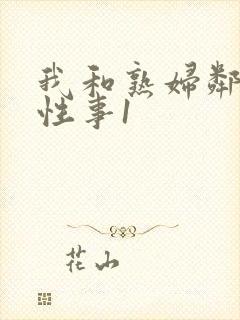 我和熟妇鄰
性事1
花山